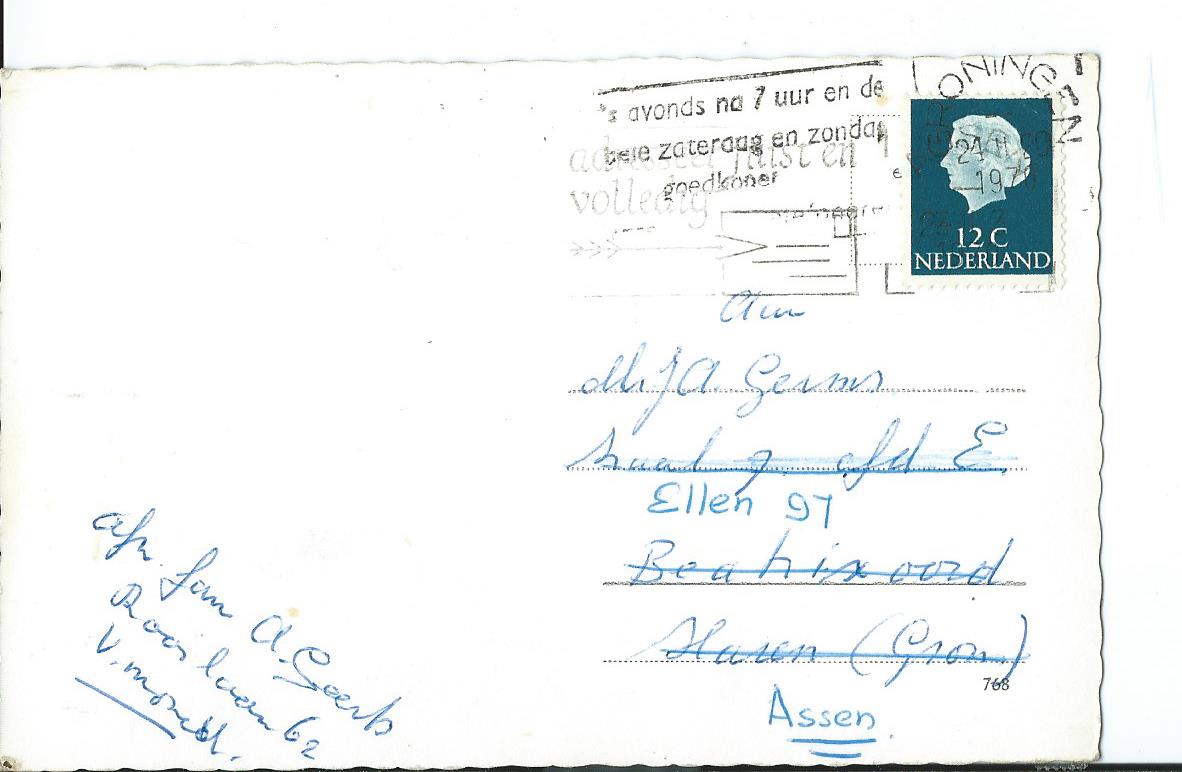 's avonds na 7 uur en de
hele zaterdag en zondag
goedkoper
adresseer juist en
volledig
GRONINGEN
24 II
197
12 C
NEDERLAND
Aan
J A Germs
zaal 7 afd E
Ellen 97
Beatrixoord
Haren (Gron.)
768
Assen
afz. Jan A. Geerts
62
V.mond.